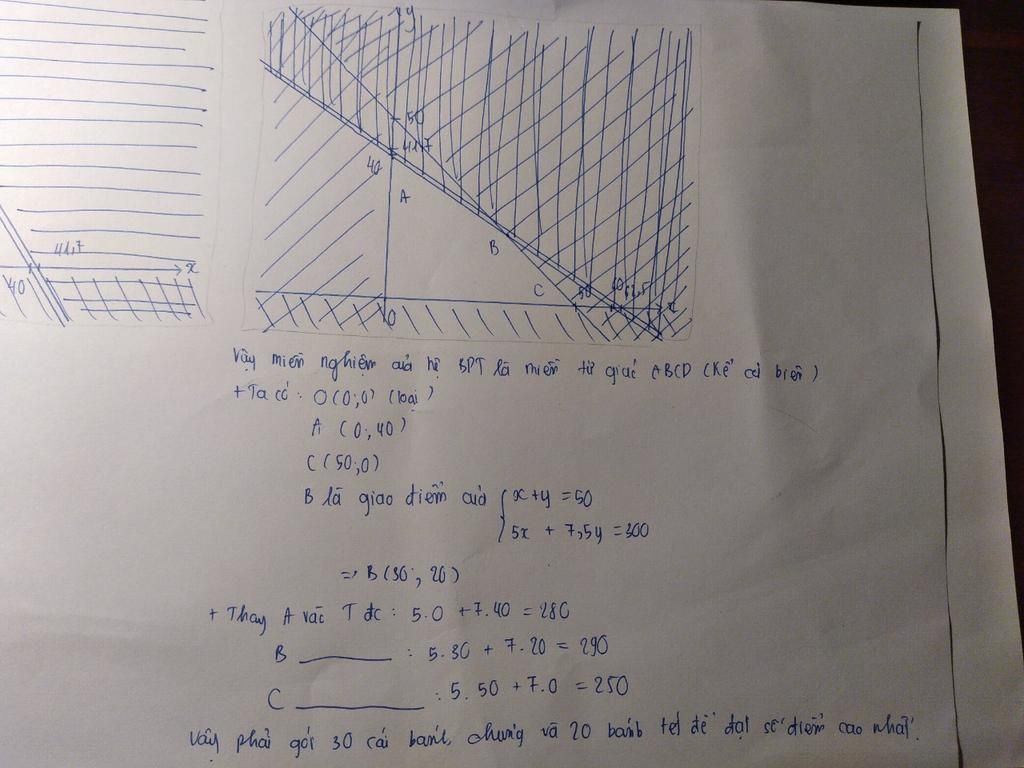 41,7
x
40
y
50
41,7
40
A
B
C
50
60
62,5
x
O
Vậy miền nghiệm của hệ BPT là miền tứ giác ABCD (kể cả biên)
+ Ta có: O(0;0) (loại)
A (0;40)
C(50;0)
B là giao điểm của { x+y = 50
5x + 7,5y = 300
=> B(30; 20)
+ Thay A vào T đc: 5.0 + 7.40 = 280
B ______ : 5.30 + 7.20 = 290
C ______ : 5.50 + 7.0 = 250
Vậy phải gói 30 cái bánh chưng và 20 bánh tét để đạt số điểm cao nhất.